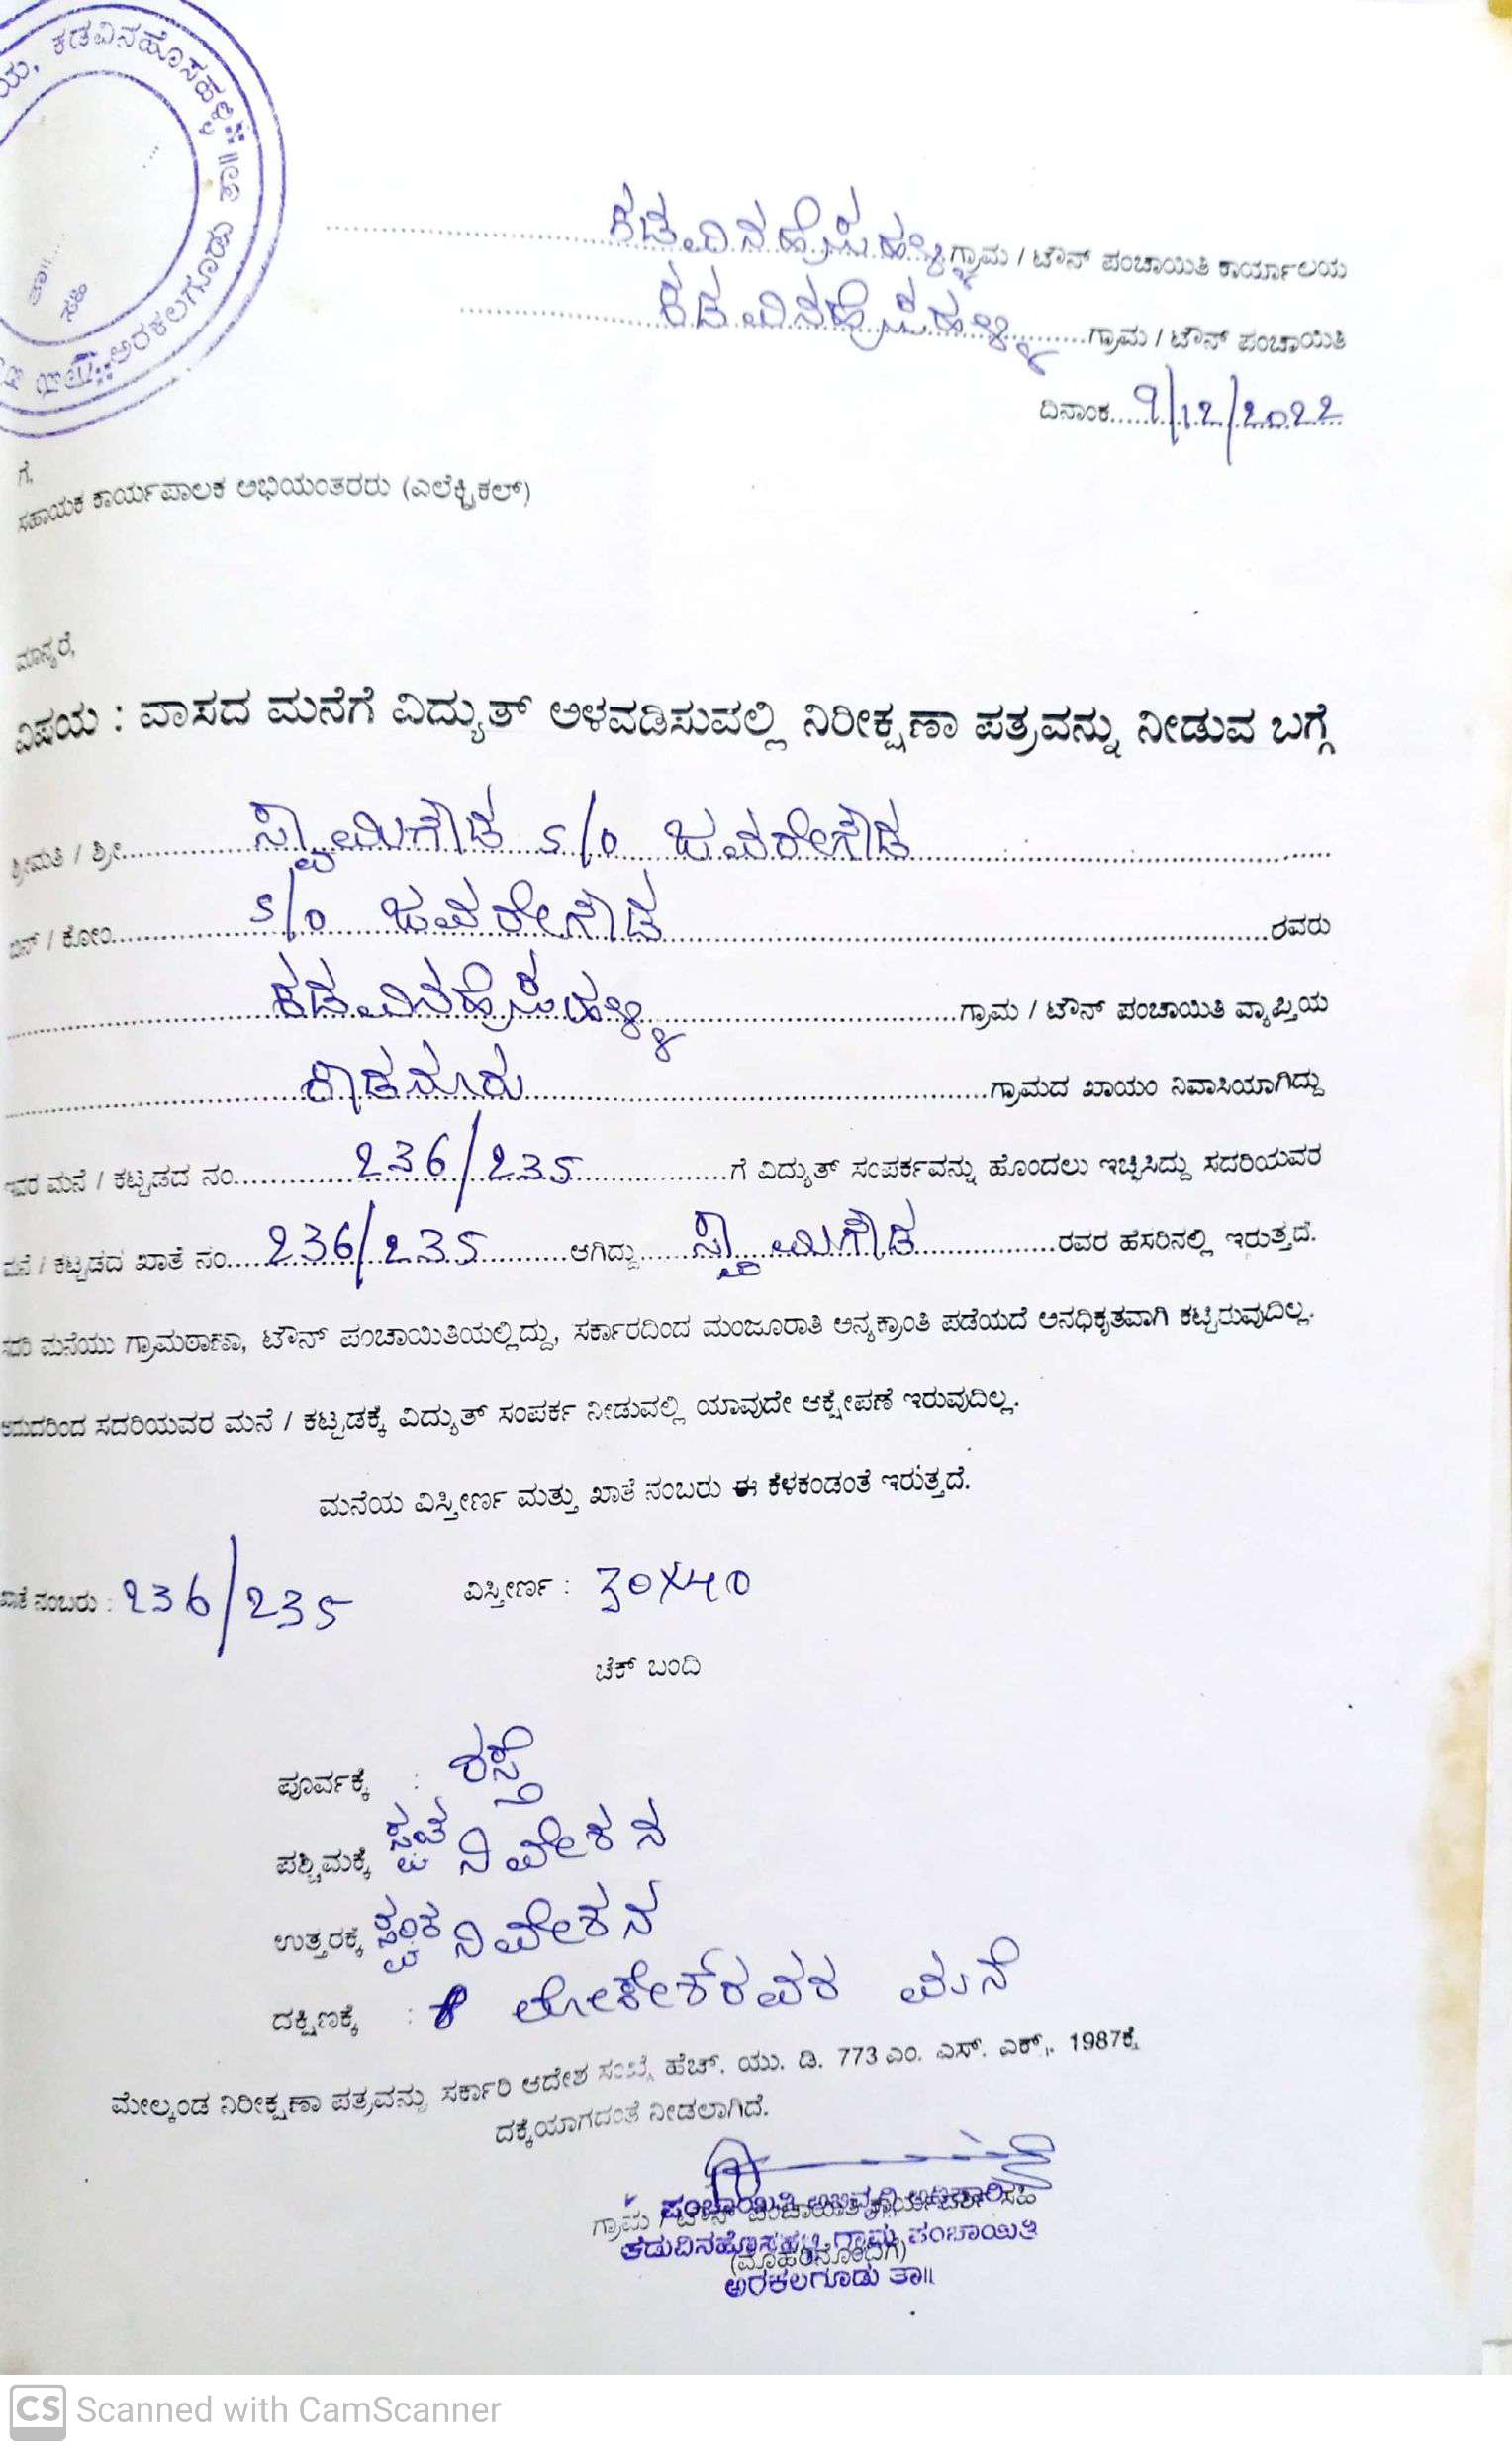 ಕಡವಿನಹೊಸಹಳ್ಳಿ
ಅರಕಲಗೂಡು ತಾ॥
ಕಡವಿನಹೊಸಹಳ್ಳಿ ಗ್ರಾಮ / ಟೌನ್ ಪಂಚಾಯಿತಿ ಕಾರ್ಯಾಲಯ
ಕಡವಿನಹೊಸಹಳ್ಳಿ ಗ್ರಾಮ / ಟೌನ್ ಪಂಚಾಯಿತಿ
ದಿನಾಂಕ 9/12/2022
ಗೆ,
ಸಹಾಯಕ ಕಾರ್ಯಪಾಲಕ ಅಭಿಯಂತರರು (ಎಲೆಕ್ಟ್ರಿಕಲ್)
ಮಾನ್ಯರೆ,
ವಿಷಯ : ವಾಸದ ಮನೆಗೆ ವಿದ್ಯುತ್ ಅಳವಡಿಸುವಲ್ಲಿ ನಿರೀಕ್ಷಣಾ ಪತ್ರವನ್ನು ನೀಡುವ ಬಗ್ಗೆ
ಶ್ರೀಮತಿ / ಶ್ರೀ ಸ್ವಾಮಿಗೌಡ s/o ಜವರೇಗೌಡ
ಬಿನ್ / ಕೋಂ s/o ಜವರೇಗೌಡ ರವರು
ಕಡವಿನಹೊಸಹಳ್ಳಿ ಗ್ರಾಮ / ಟೌನ್ ಪಂಚಾಯಿತಿ ವ್ಯಾಪ್ತಿಯ
ಗ್ರಾಮದ ಖಾಯಂ ನಿವಾಸಿಯಾಗಿದ್ದು
ಇವರ ಮನೆ / ಕಟ್ಟಡದ ನಂ 236/235 ಗೆ ವಿದ್ಯುತ್ ಸಂಪರ್ಕವನ್ನು ಹೊಂದಲು ಇಚ್ಛಿಸಿದ್ದು ಸದರಿಯವರ
ಮನೆ / ಕಟ್ಟಡದ ಖಾತೆ ನಂ 236/235 ಆಗಿದ್ದು ಸ್ವಾಮಿಗೌಡ ರವರ ಹೆಸರಿನಲ್ಲಿ ಇರುತ್ತದೆ.
ಸದರಿ ಮನೆಯು ಗ್ರಾಮಠಾಣಾ, ಟೌನ್ ಪಂಚಾಯಿತಿಯಲ್ಲಿದ್ದು, ಸರ್ಕಾರದಿಂದ ಮಂಜೂರಾತಿ ಅನ್ಯಕ್ರಾಂತಿ ಪಡೆಯದೆ ಅನಧಿಕೃತವಾಗಿ ಕಟ್ಟಿರುವುದಿಲ್ಲ.
ಆದುದರಿಂದ ಸದರಿಯವರ ಮನೆ / ಕಟ್ಟಡಕ್ಕೆ ವಿದ್ಯುತ್ ಸಂಪರ್ಕ ನೀಡುವಲ್ಲಿ ಯಾವುದೇ ಆಕ್ಷೇಪಣೆ ಇರುವುದಿಲ್ಲ.
ಮನೆಯ ವಿಸ್ತೀರ್ಣ ಮತ್ತು ಖಾತೆ ನಂಬರು ಈ ಕೆಳಕಂಡಂತೆ ಇರುತ್ತದೆ.
ಖಾತೆ ನಂಬರು : 236/235 ವಿಸ್ತೀರ್ಣ : 30X40
ಚೆಕ್ ಬಂದಿ
ಪೂರ್ವಕ್ಕೆ : ರಸ್ತೆ
ಪಶ್ಚಿಮಕ್ಕೆ ನಿವೇಶನ
ಉತ್ತರಕ್ಕೆ ನಿವೇಶನ
ದಕ್ಷಿಣಕ್ಕೆ : ಲೋಕೇಶ್‌ರವರ ಮನೆ
ಮೇಲ್ಕಂಡ ನಿರೀಕ್ಷಣಾ ಪತ್ರವನ್ನು ಸರ್ಕಾರಿ ಆದೇಶ ಸಂಖ್ಯೆ ಹೆಚ್. ಯು. ಡಿ. 773 ಎಂ. ಎಸ್. ಎಕ್ಸ್. 1987ಕ್ಕೆ
ದಕ್ಕೆಯಾಗದಂತೆ ನೀಡಲಾಗಿದೆ.
ಗ್ರಾಮ / ಟೌನ್ ಪಂಚಾಯಿತಿ ಕಾರ್ಯದರ್ಶಿ ಸಹಿ
ಪಂಚಾಯಿತಿ ಅಭಿವೃದ್ಧಿ ಅಧಿಕಾರಿ
ಕಡುವಿನಹೊಸಹಳ್ಳಿ ಗ್ರಾಮ ಪಂಚಾಯಿತಿ
(ಮೊಹರಿನೊಂದಿಗೆ)
ಅರಕಲಗೂಡು ತಾ॥
CS Scanned with CamScanner